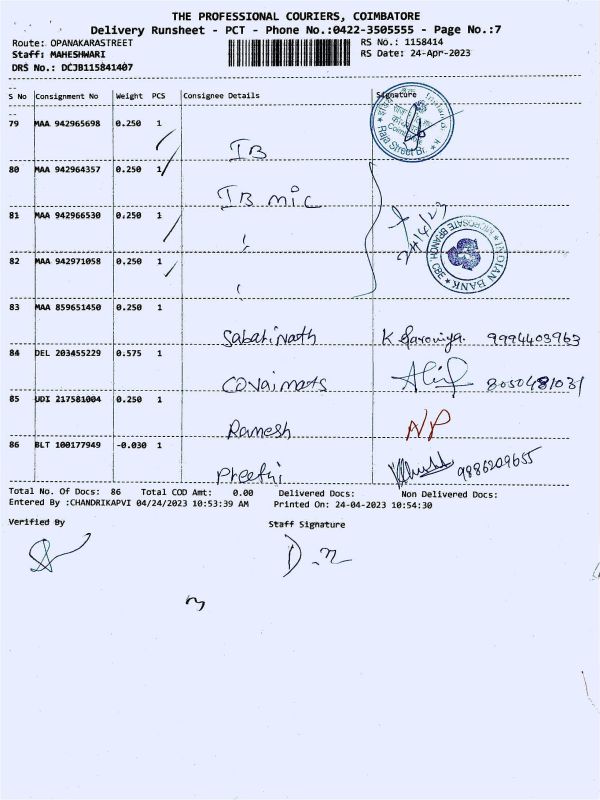 THE PROFESSIONAL COURIERS, COIMBATORE
Delivery Runsheet - PCT - Phone No.:0422-3505555 - Page No.:7
Route: OPANAKARASTREET
RS No.: 1158414
Staff: MAHESHWARI
RS Date: 24-Apr-2023
DRS No.: DCJB115841407
S No Consignment No Weight PCS Consignee Details Signature
79 MAA 942965698 0.250 1
IB
Raja Street Br.
80 MAA 942964357 0.250 1
IB mic
81 MAA 942966530 0.250 1
24/4/23
INDIAN BANK
MICROSATE BRANCH, CBE
82 MAA 942971058 0.250 1
83 MAA 859651450 0.250 1
Sabarinath K Saroniya. 9994403963
84 DEL 203455229 0.575 1
Covaimats 8050481031
85 UDI 217581004 0.250 1
Ramesh NP
86 BLT 100177949 -0.030 1
Preethi 9886209655
Total No. Of Docs: 86 Total COD Amt: 0.00 Delivered Docs: Non Delivered Docs:
Entered By :CHANDRIKAPVI 04/24/2023 10:53:39 AM Printed On: 24-04-2023 10:54:30
Verified By Staff Signature